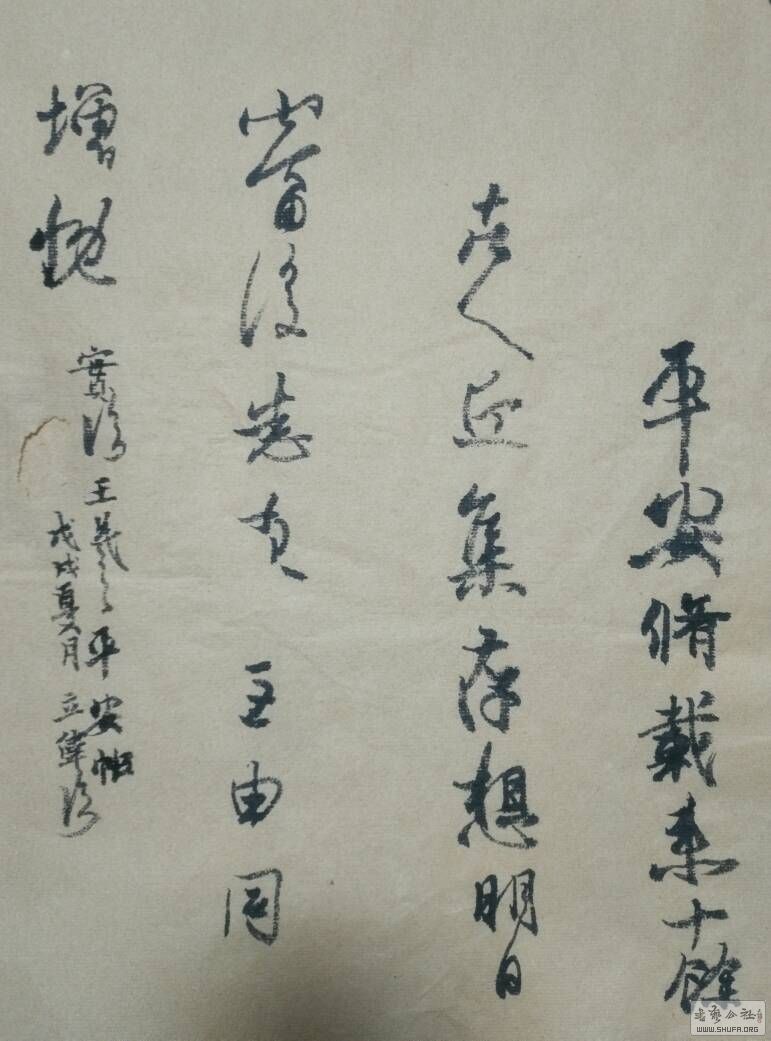 平安脩載来十餘
人近集存想明日
當復悉 无由同
增慨
臨王羲之平安帖
戊戌夏月立偉臨
书艺公社
WWW.SHUFA.ORG